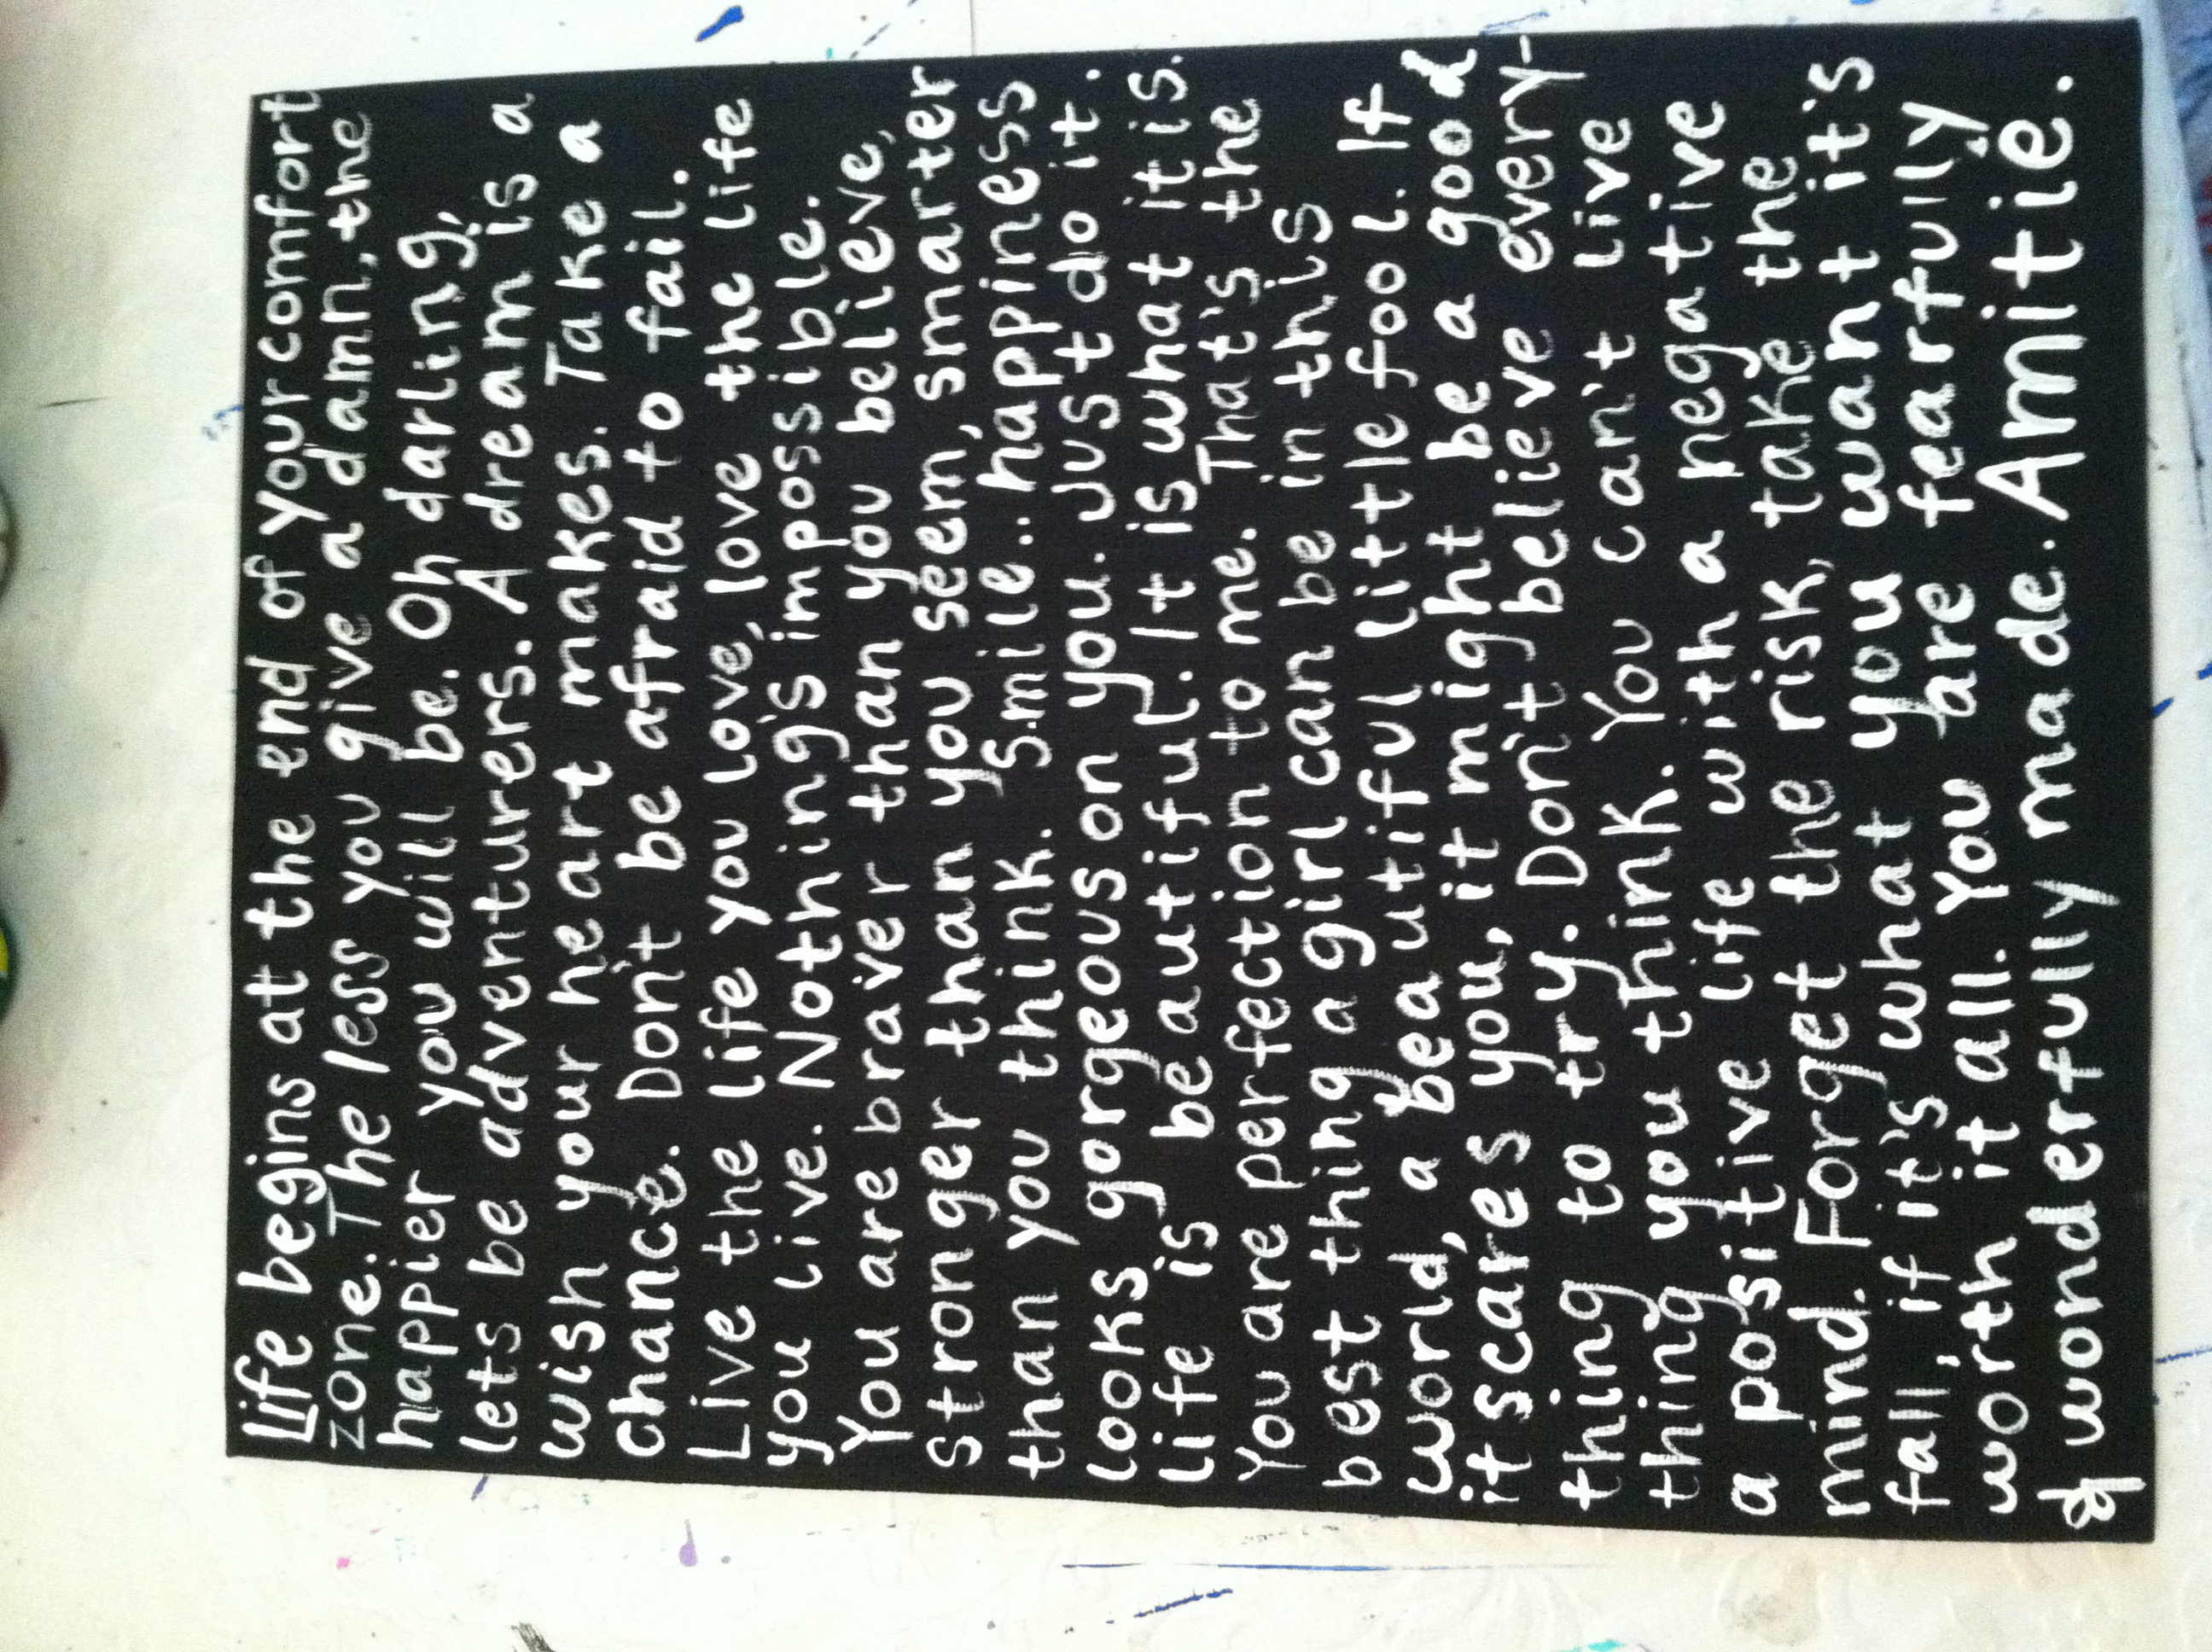 Life begins at the end of your comfort
zone. The less you give a damn, the
happier you will be. Oh darling,
lets be adventurers. A dream is a
wish your heart makes. Take a
chance. Don't be afraid to fail.
Live the life you love, love the life
you live. Nothing's impossible.
You are braver than you believe,
stronger than you seem, smarter
than you think. Smile.. happiness
looks gorgeous on you. Just do it.
life is beautiful. It is what it is.
You are perfection to me. That's the
best thing a girl can be in this
world, a beautiful little fool. If
it scares you, it might be a good
thing to try. Don't believe every-
thing you think. You can't live
a positive life with a negative
mind. Forget the risk, take the
fall, if it's what you want it's
worth it all. You are fearfully
& wonderfully made. Amitie.